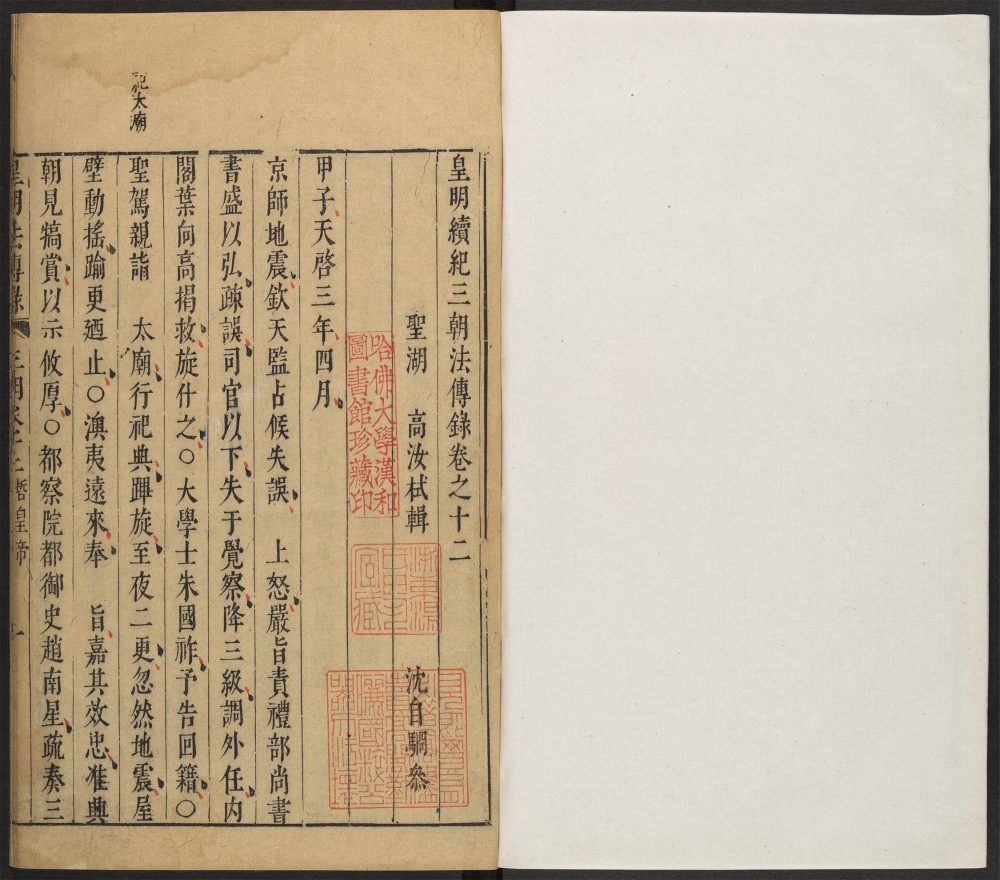 皇明續紀三朝法傳錄卷之十二
聖湖 高汝栻輯 沈自駉叅
哈佛大學漢和
圖書館珍藏印
甲子天啓三年四月
京師地震欽天監占候失誤 上怒嚴旨責禮部尚書
書盛以弘疎誤司官以下失于覺察降三級調外任内
閣葉向高揭救旋什之○大學士朱國祚予告回籍○
祀太廟
聖駕親詣 太廟行祀典蹕旋至夜二更忽然地震屋
壁動搖踰更廼止○澳夷遠來奉 旨嘉其效忠准與
朝見犒賞以示攸厚○都察院都御史趙南星疏奏三
皇明法傳錄 三朝卷十二 哲皇帝 一